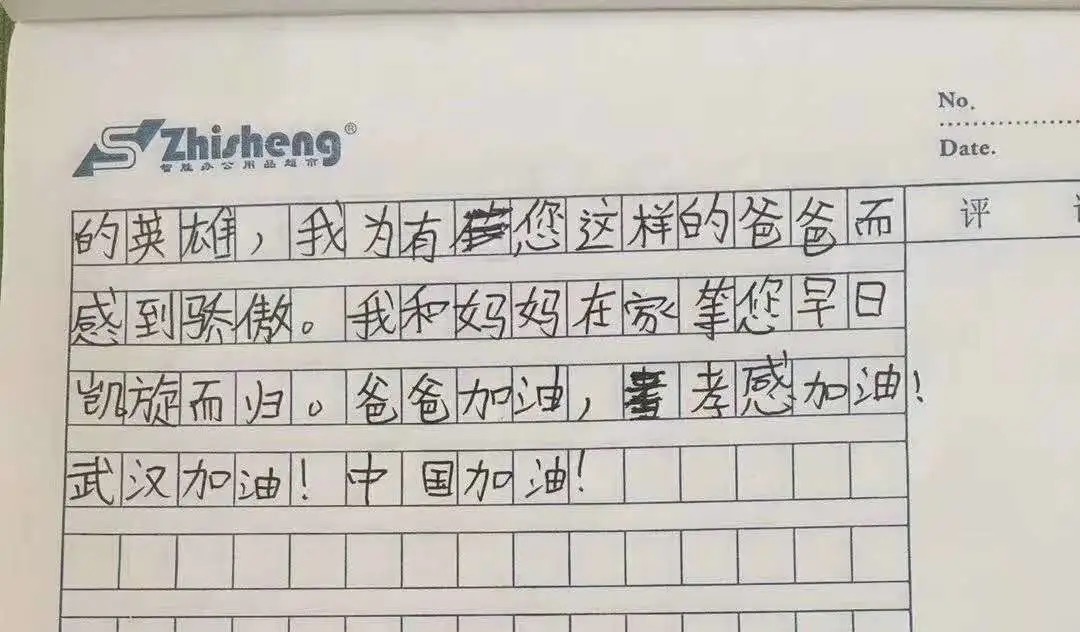 No.
Zhisheng®
智胜办公用品超市
Date.
评
的英雄，我为有您这样的爸爸而
感到骄傲。我和妈妈在家等您早日
凯旋而归。爸爸加油，孝感加油！
武汉加油！中国加油！